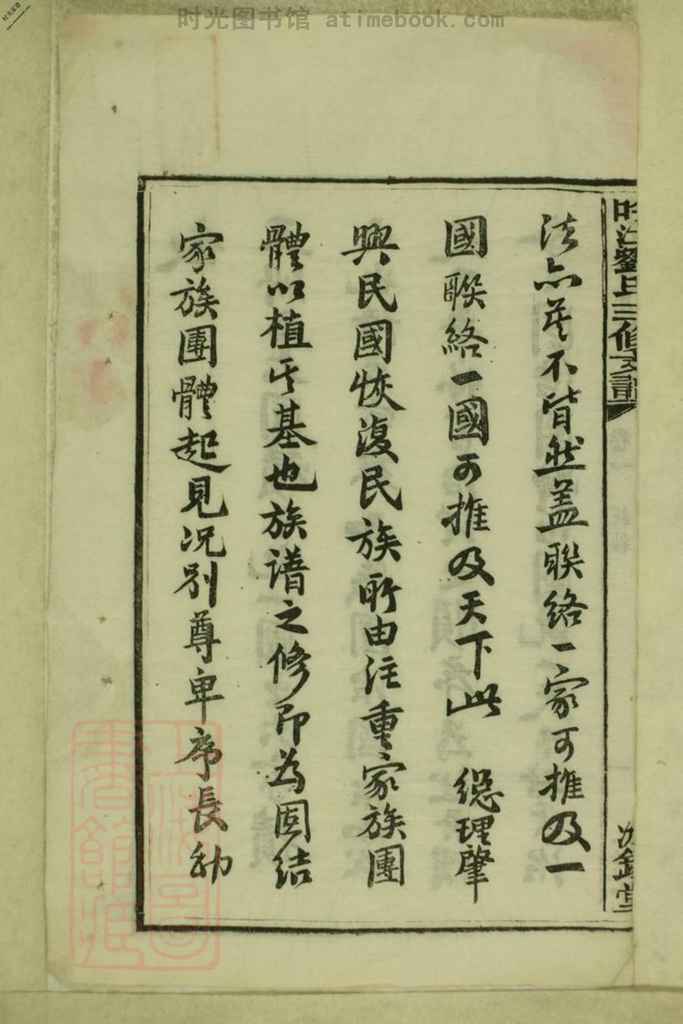 时光图书馆 atimebook.com
劉氏三修支譜
法亦莫不皆然蓋聯絡一家可推及一
國聯絡一國可推及天下此 總理肇
興民國恢復民族所由注重家族團
體以植其基也族譜之修即為固結
家族團體起見况別尊卑序長幼